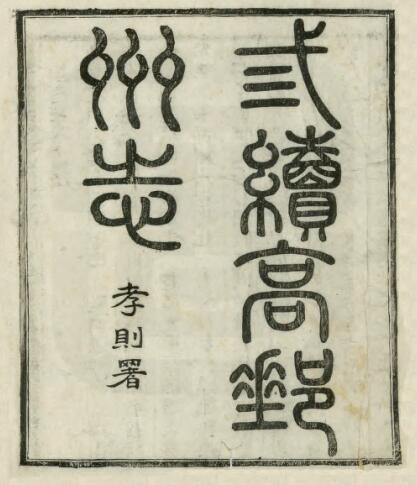 弎續高郵
州志
孝則署